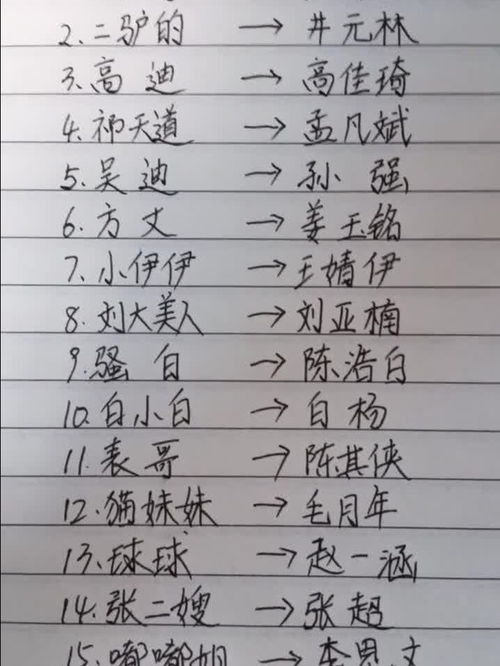 2.二驴的 → 井元林
3.高迪 → 高佳琦
4.祁天道 → 孟凡斌
5.吴迪 → 孙强
6.方丈 → 姜玉铭
7.小伊伊 → 王婧伊
8.刘大美人 → 刘亚楠
9.骚白 → 陈浩白
10.白小白 → 白杨
11.表哥 → 陈其侠
12.猫妹妹 → 毛月年
13.球球 → 赵一涵
14.张二嫂 → 张超
15.嘟嘟姐 → 李思文